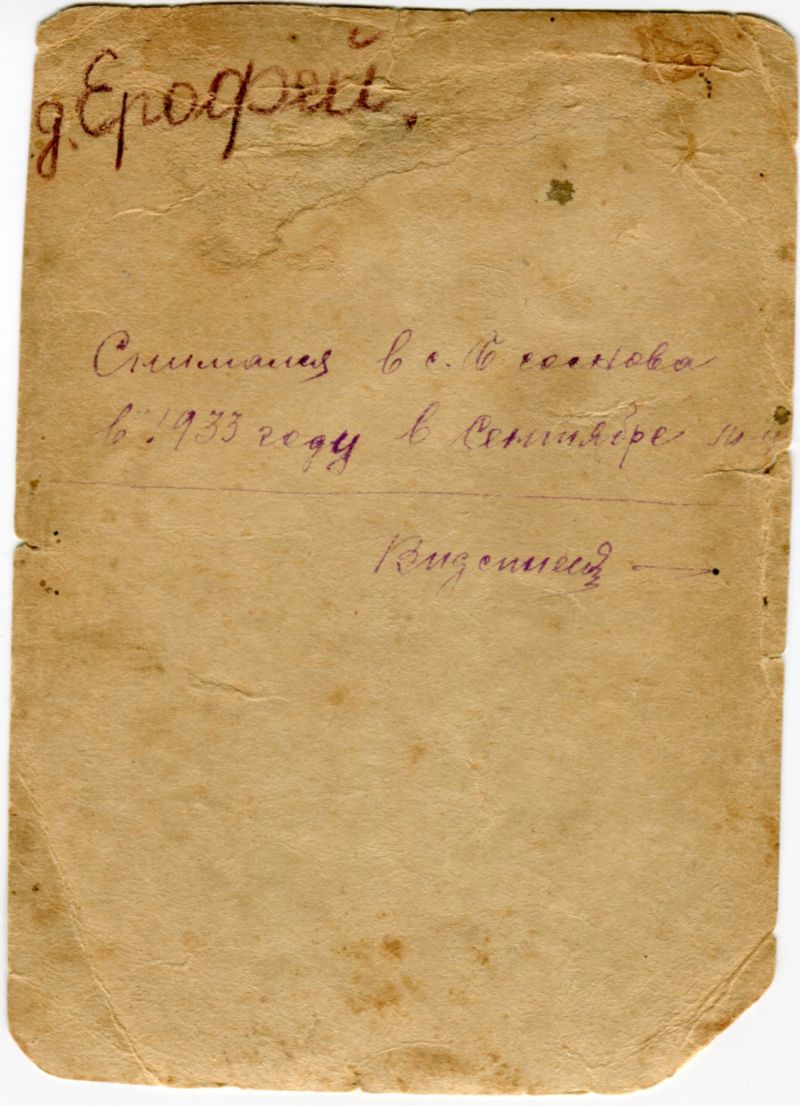 д. Ерофей.
Снимался в с. Б соснова
в 1933 году в Сентябре м-ц